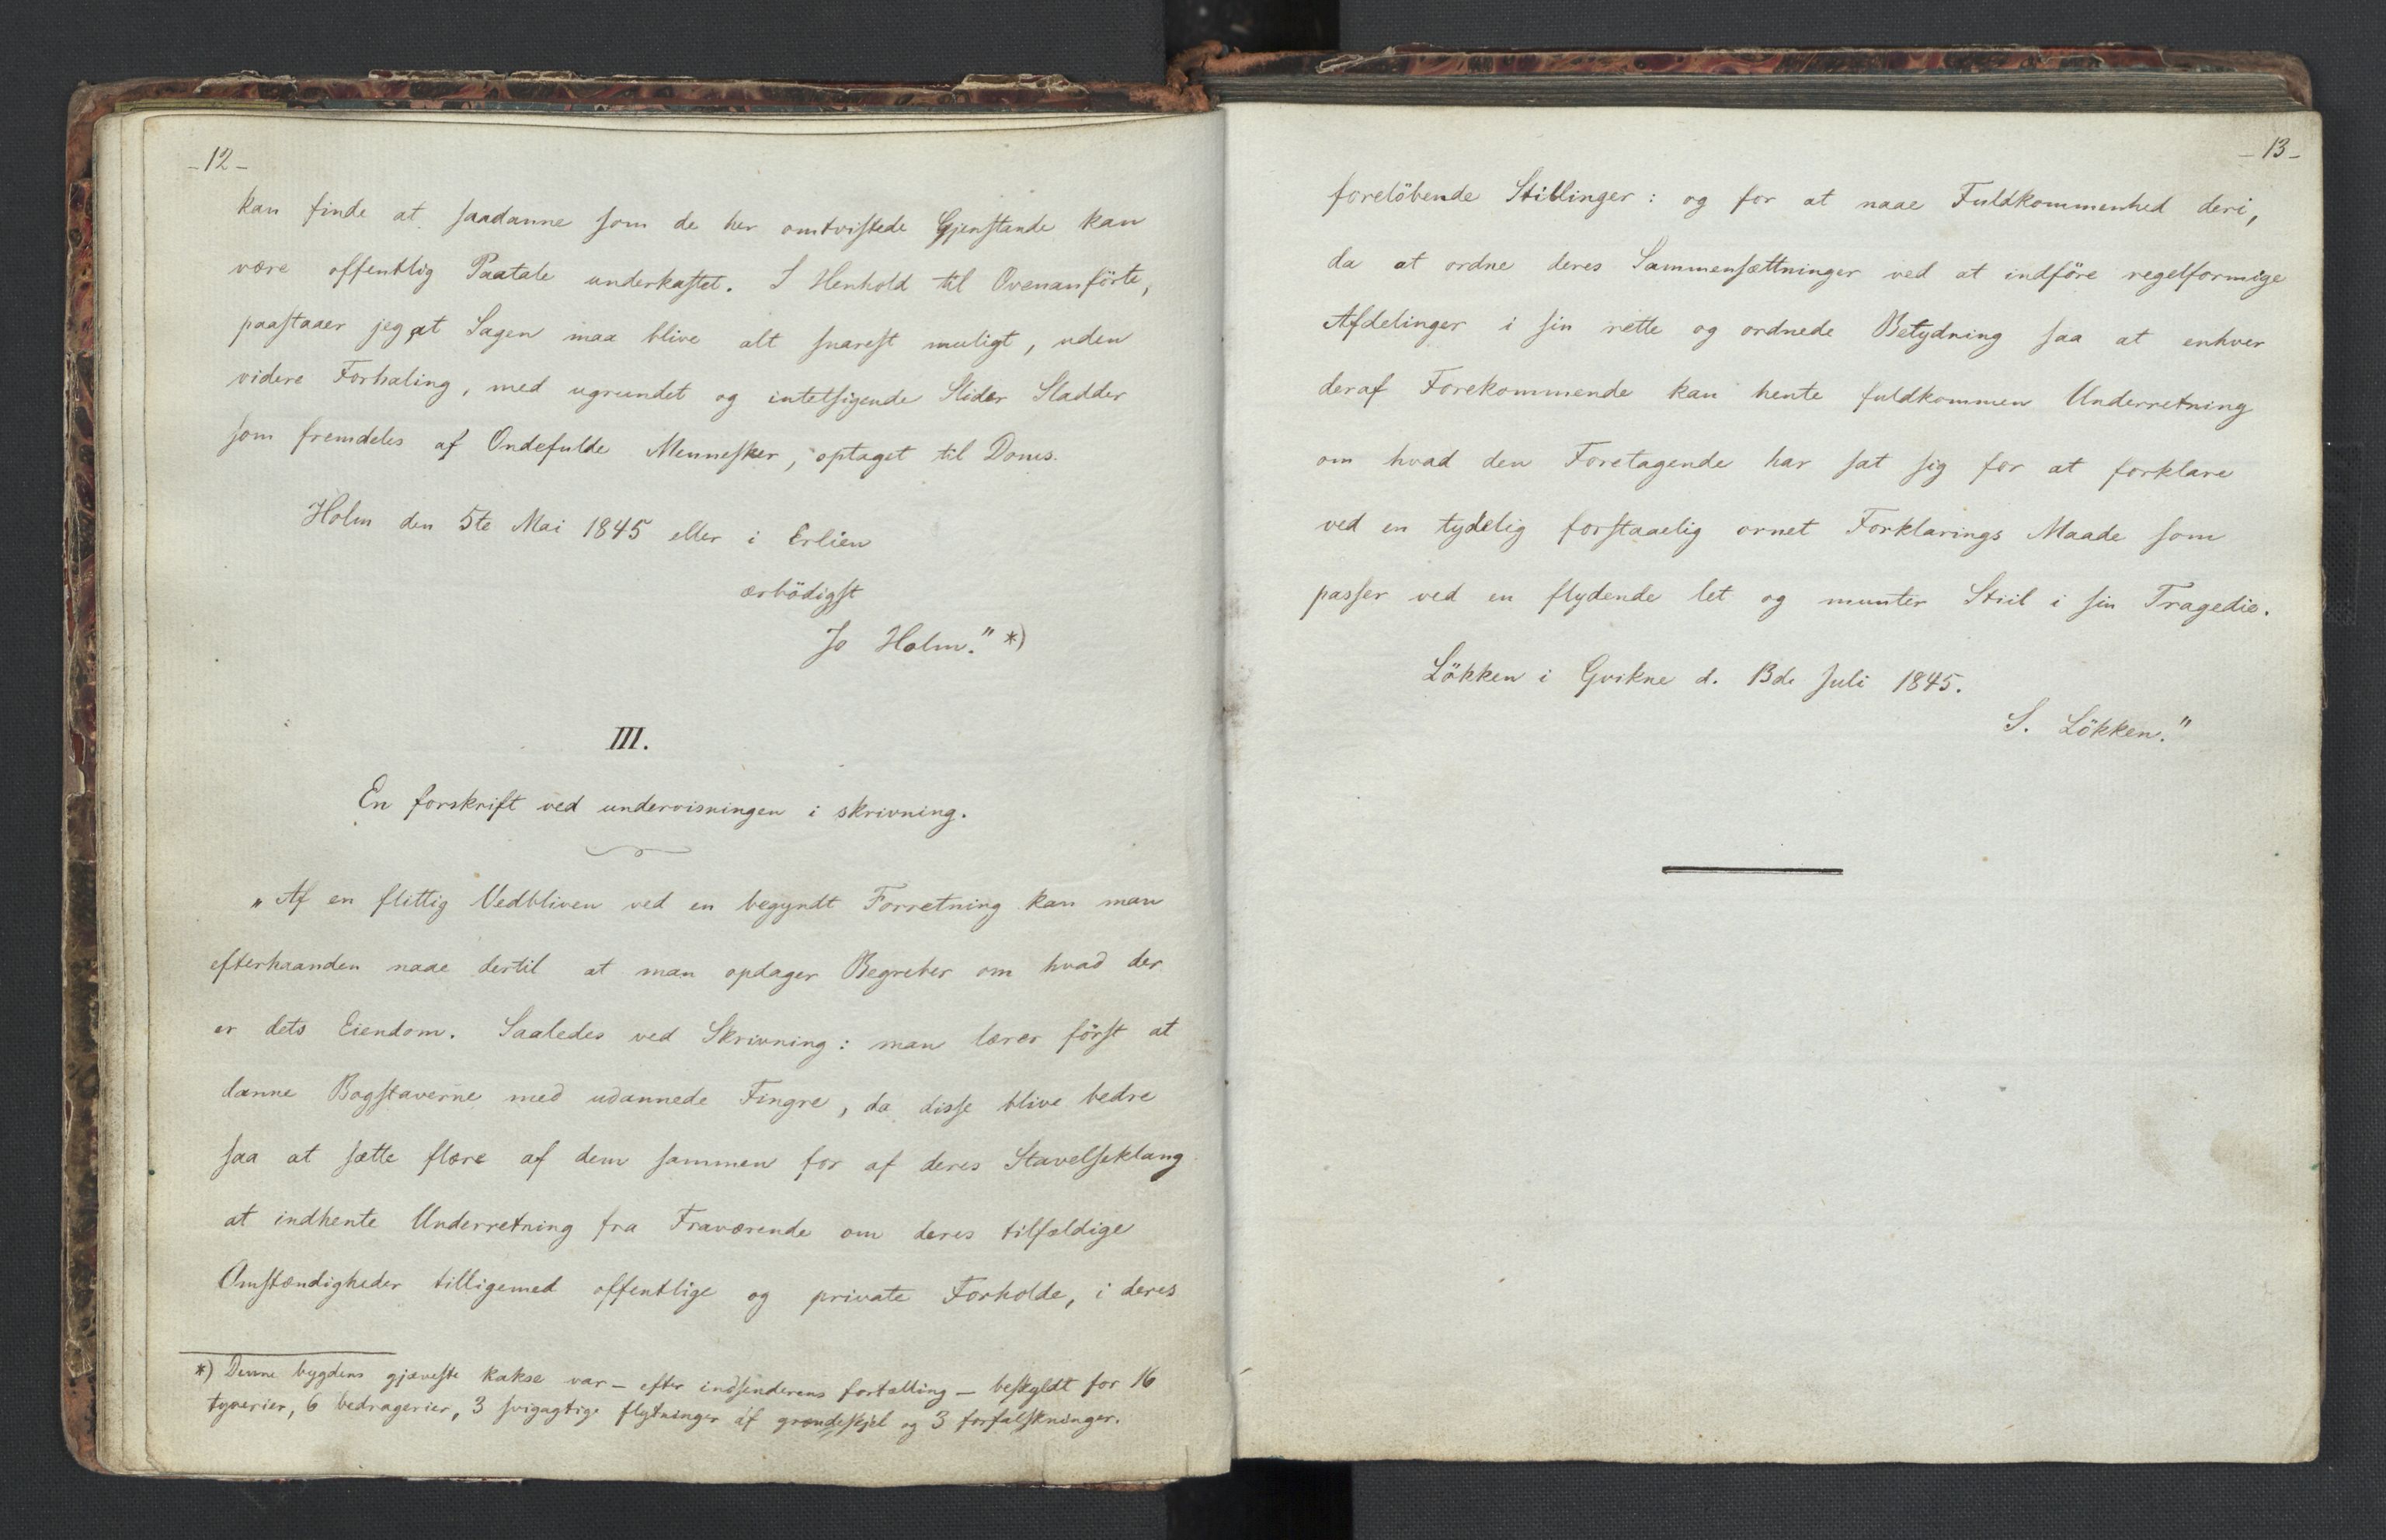 -12-
kan finde at saadanne som de her omtvistede Gjenstande kan
være offentlig Paatale underkastet. I Henhold til Ovenanförte,
paastaaer jeg at Sagen maa blive alt snarest muligt, uden
videre Forhaling, med ugrundet og intetsigende Slider Sladder
som fremdeles af Ondefulde Mennesker, optaget til Doms.
Holm den 5te Mai 1845 eller i Erlien
ærbödigst
Jo Holm." *)
III.
En forskrift ved undervisningen i skrivning.
„Af en flittig Vedbliven ved en begyndt Forretning kan man
efterhaanden naae dertil at man opdager Begreber om hvad der
er dets Eiendom. Saaledes ved Skrivning: man lærer först at
danne Bogstaverne med udannede Fingre, da disse blive bedre
saa at sætte flere af dem sammen for af deres Stavelseklang
at indhente Underretning fra Fraværende om deres tilfældige
Omstændigheder tilligemed offentlige og private Forholde, i deres
*) Denne bygdens gjæveste kakse var – efter indsenderens fortælling – beskyldt for 16
tyverier, 6 bedragerier, 3 svigagtige flytninger af grændeskjel og 3 forfalskninger.
-13-
forelöbende Stillinger: og for at naae Fuldkommenhed deri,
da at ordne deres Sammensættninger ved at indföre regelformige
Afdelinger i sin rette og ordnede Betydning saa at enhver
deraf Forekommende kan hente fuldkommen Underretning
om hvad den Foretagende har sat sig for at forklare
ved en tydelig forstaaelig ornet Forklarings Maade som
passer ved en flydende let og munter Stiil i sin Tragedie.
Lökken i Qvikne d. 13de Juli 1845.
S. Lökken."